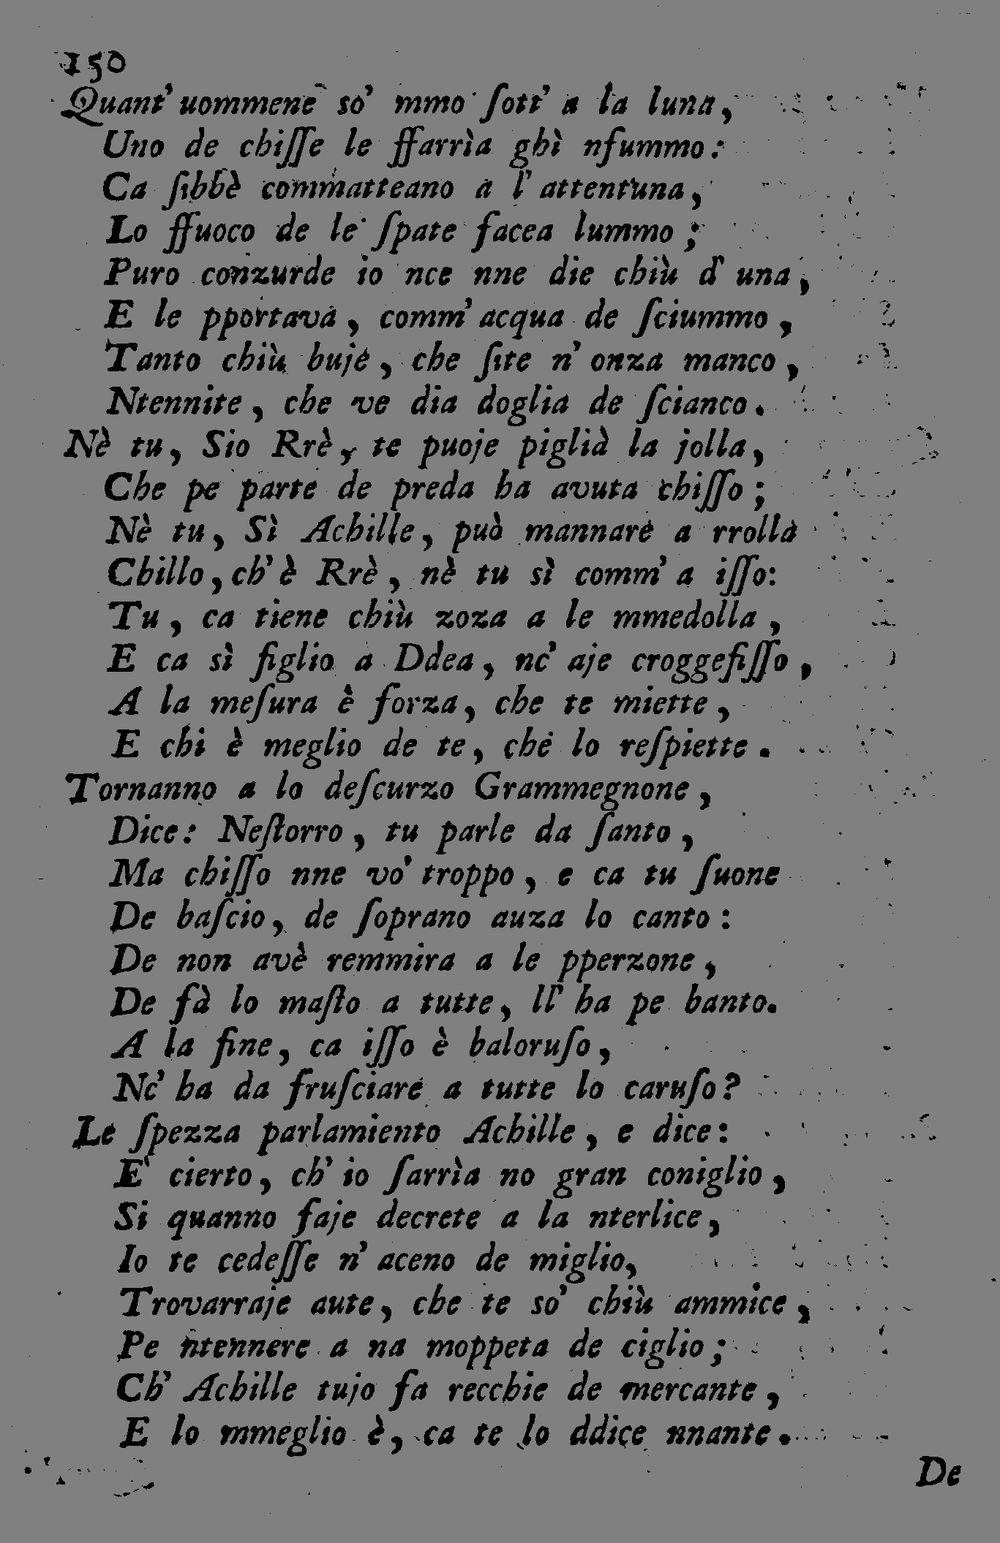 150
Quant' uommene so' mmo ſott' a la luna,
Uno de chiſſe le ffarrìa ghì nfummo:
Ca ſibbè commatteano a l' attentuna,
Lo ffuoco de le ſpate facea lummo;
Puro conzurde io nce nne die chiù d' una,
E le pportava, comm' acqua de ſciummo,
Tanto chiù buje, che ſite n' onza manco,
Ntennite, che ve dia doglia de ſcianco.
Nè tu, Sio Rrè, te puoje piglià la jolla,
Che pe parte de preda ha avuta chiſſo;
Nè tu, Sì Achille, può mannare a rrolla
Chillo, ch' è Rrè, nè tu sì comm' a iſſo:
Tu, ca tiene chiù zoza a le mmedolla,
E ca sì figlio a Ddea, nc' aje croggefiſſo,
A la meſura è forza, che te miette,
E chi è meglio de te, che lo reſpiette.
Tornanno a lo deſcurzo Grammegnone,
Dice: Neſtorro, tu parle da ſanto,
Ma chiſſo nne vo' troppo, e ca tu ſuone
De baſcio, de ſoprano auza lo canto:
De non avè remmira a le pperzone,
De fà lo maſto a tutte, ll' ha pe banto.
A la fine, ca iſſo è baloruſo,
Nc' ha da fruſciare a tutte lo caruſo?
Le ſpezza parlamiento Achille, e dice:
E' cierto, ch' io ſarrìa no gran coniglio,
Si quanno faje decrete a la nterlice,
Io te cedeſſe n' aceno de miglio,
Trovarraje aute, che te so' chiù ammice,
Pe ntennere a na moppeta de ciglio;
Ch' Achille tujo fa recchie de mercante,
E lo mmeglio è, ca te lo ddice nnante.
De